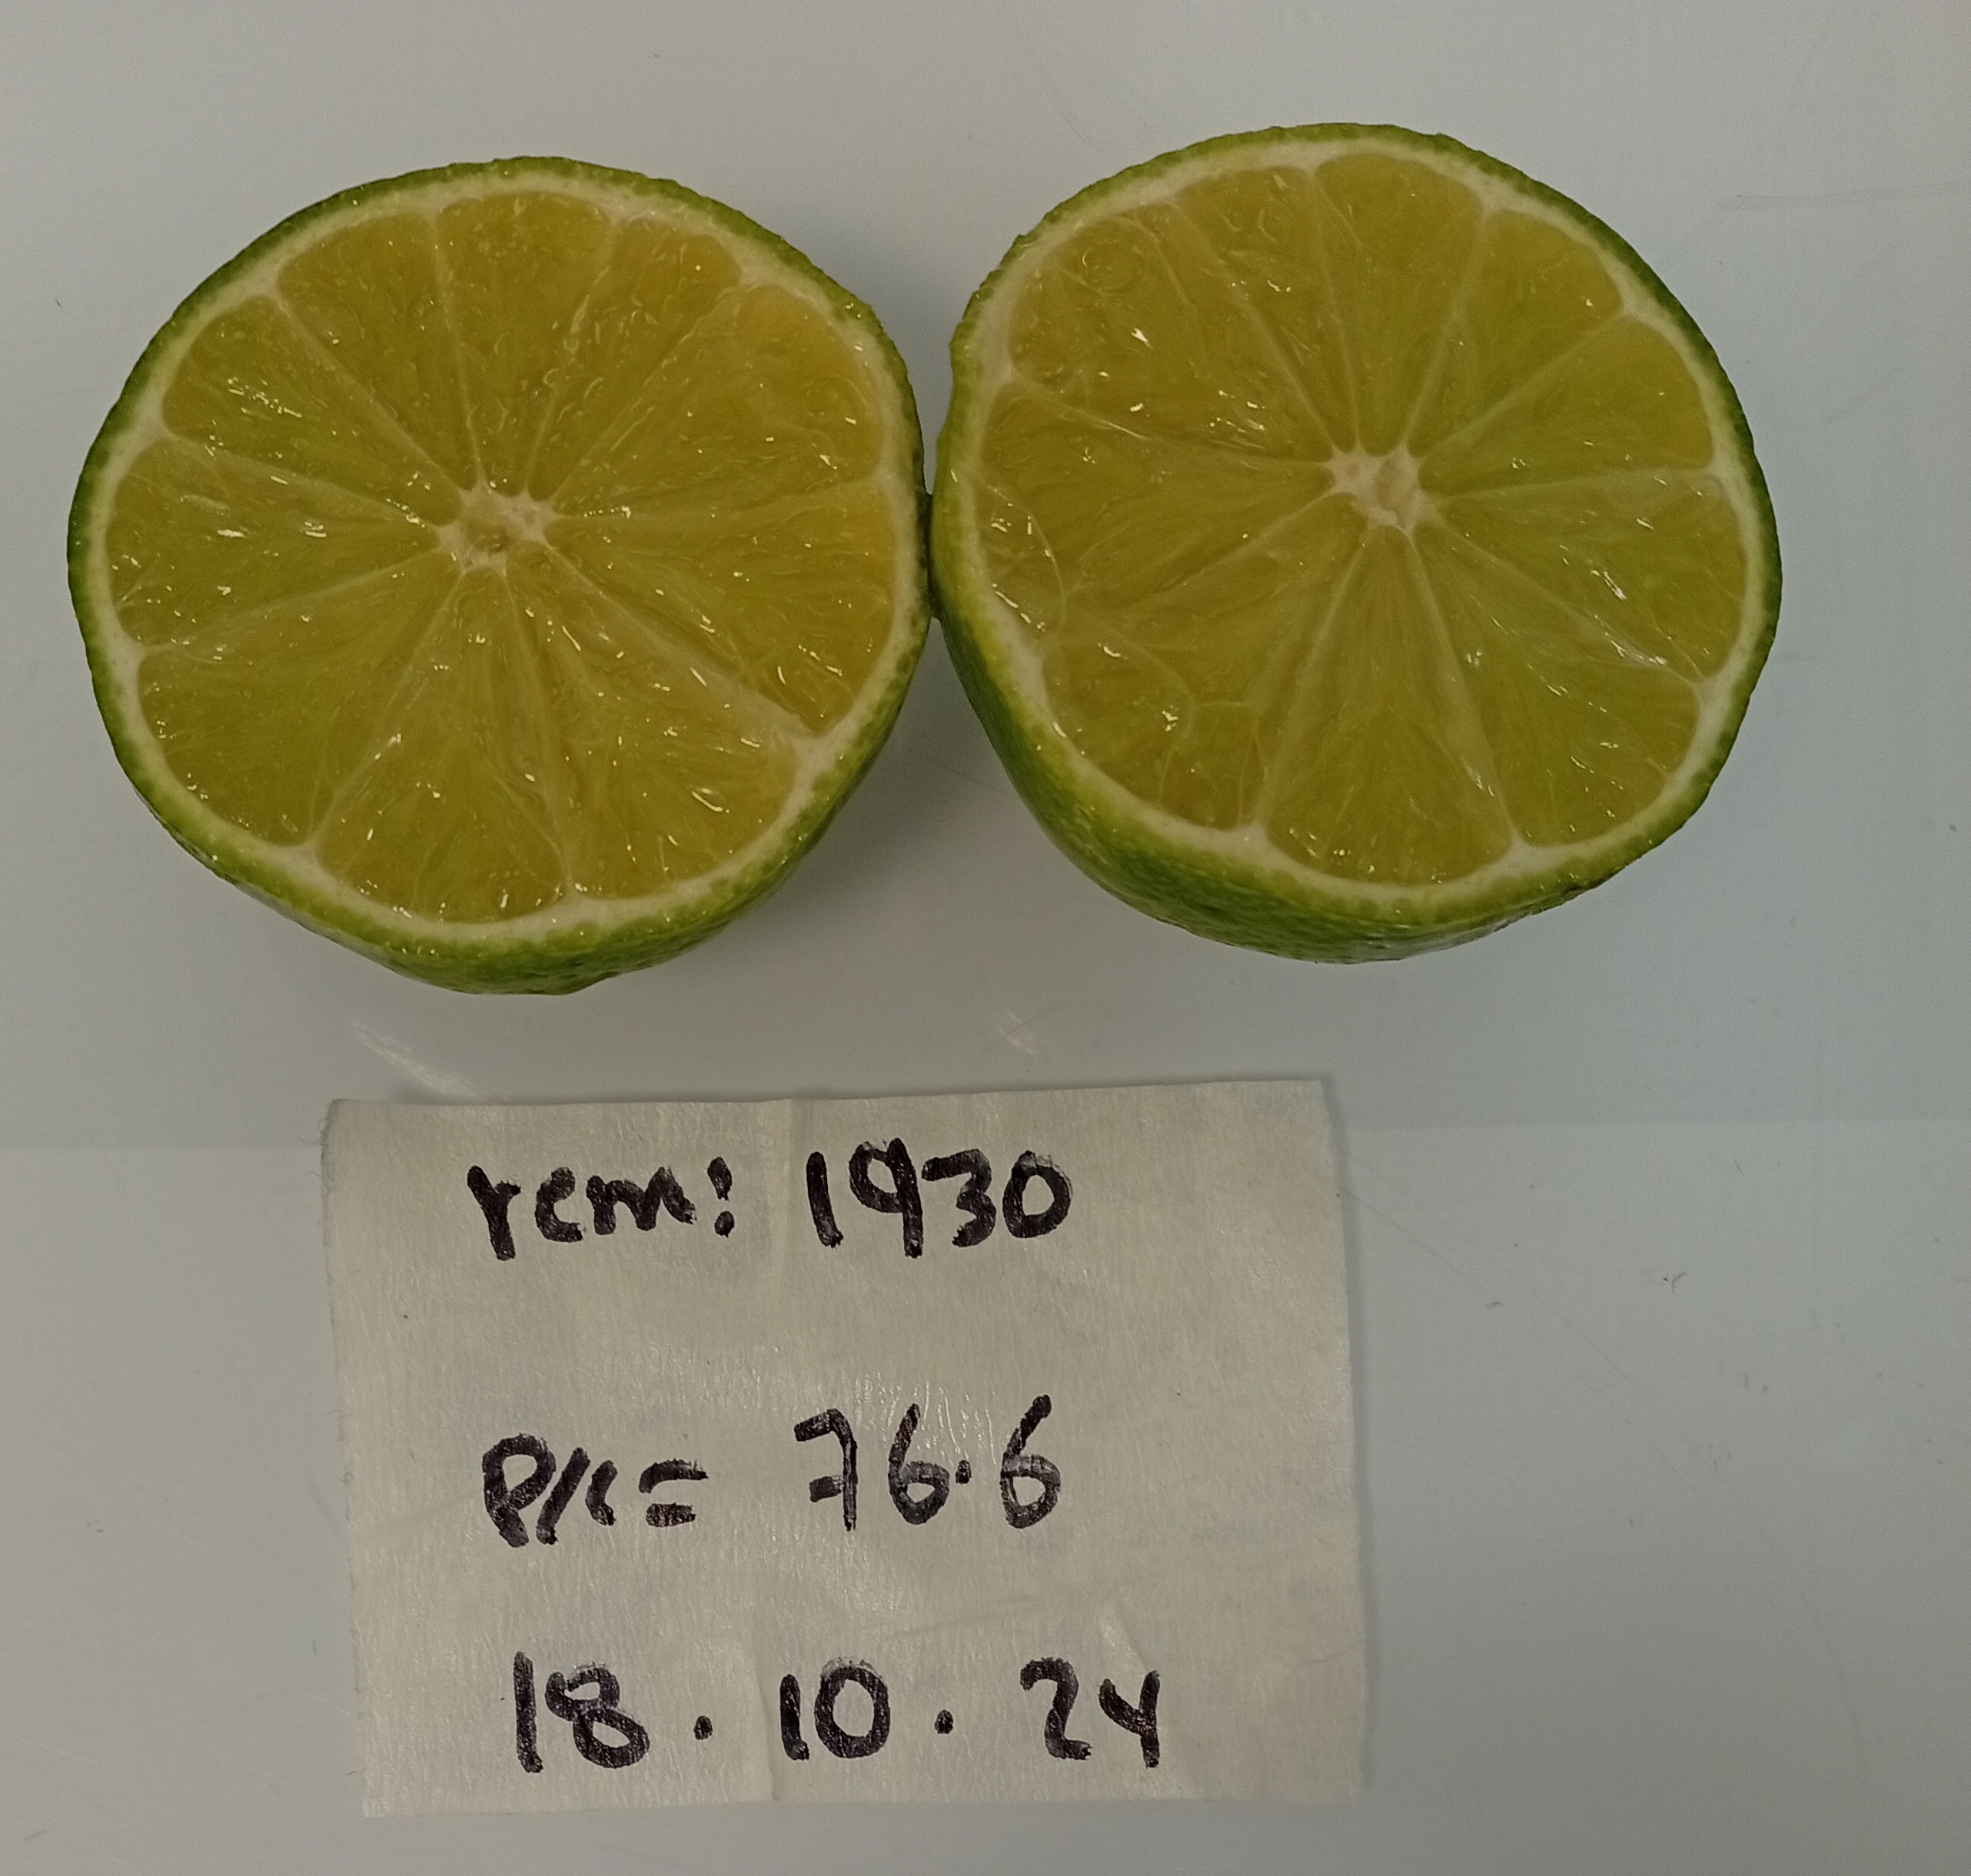 rem: 1930
P/K = 76.6
18.10.24